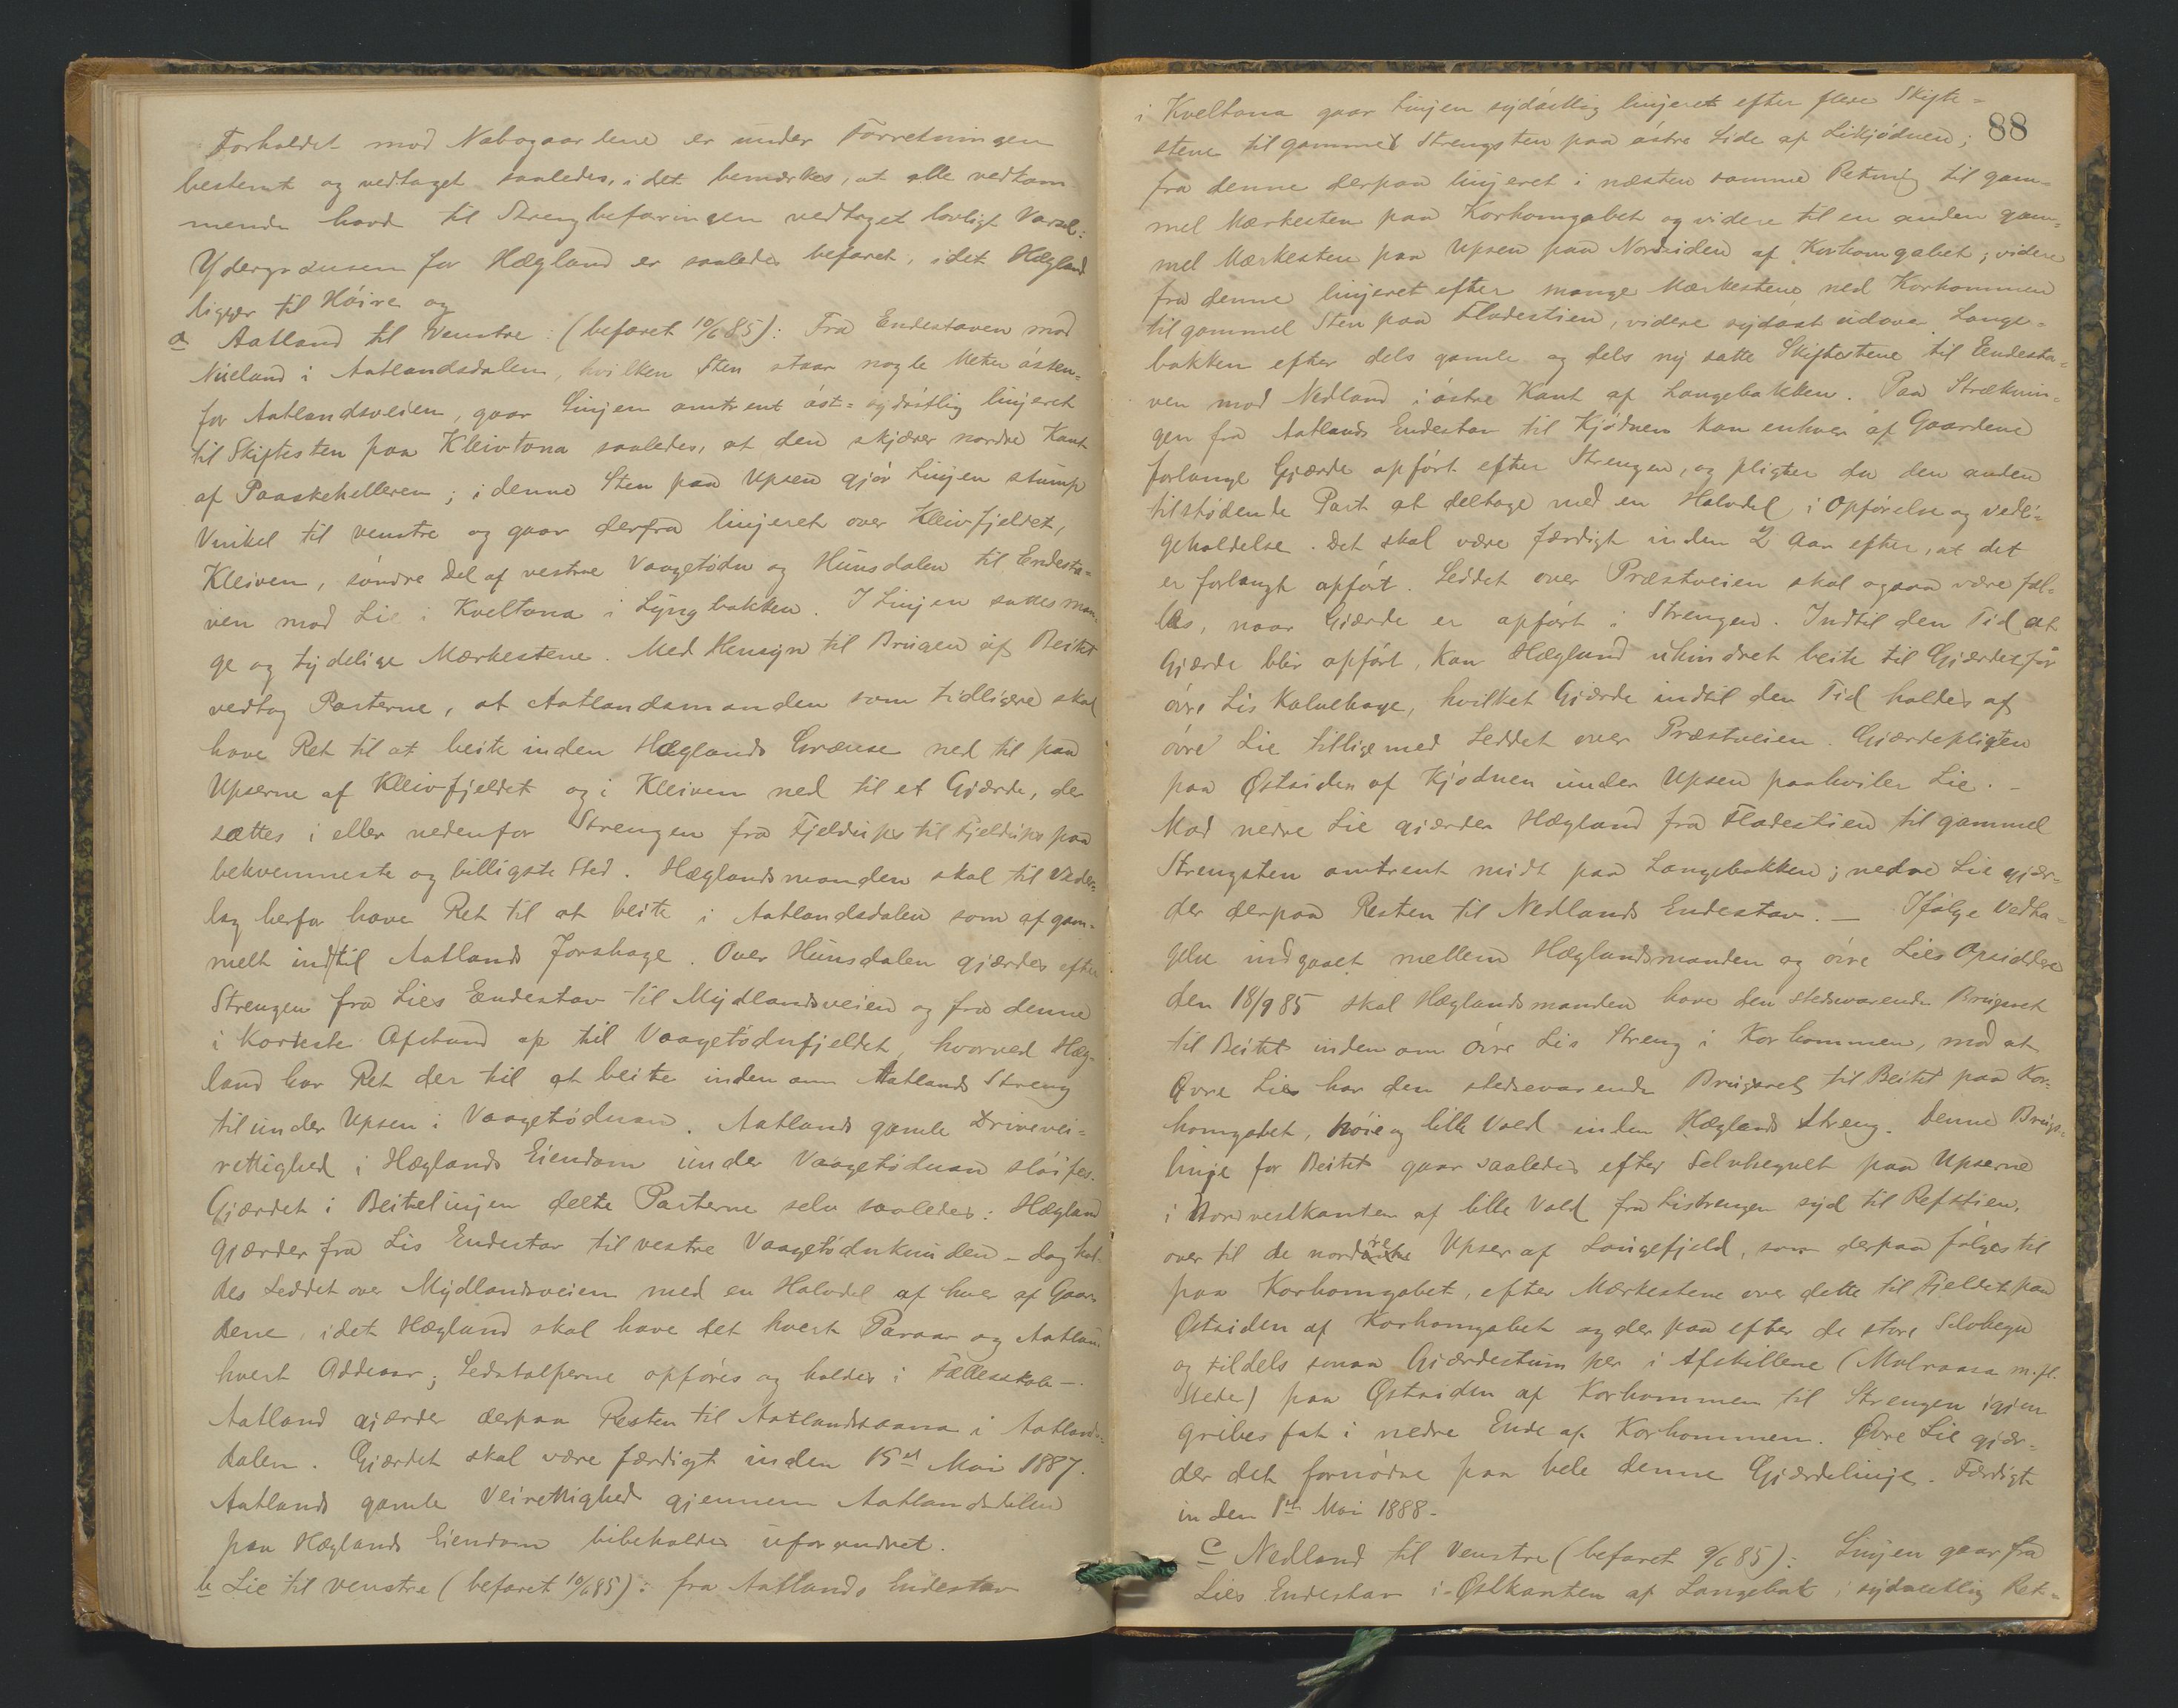 Forholdet mod Nabogaardene er under Forretningen
bestemt og vedtaget saaledes, idet bemærkes, at alle vedkom-
mende havde til Strengbefaringen vedtaget lovligt Varsel:
Ydergrænsen for Hægland er saaledes befaret, idet Hægland
ligger til Høire og
a Aatland til Venstre: (befaret 10/6 85): Fra Endestaven mod
Nueland i Aatlandsdalen, hvilken Sten staar nogle Meter østen-
for Aatlandsveien, gaar Linjen omtrent øst-sydøstlig linjeret
til Skiftesten paa Kleivtona saaledes, at den skjærer nordre Kant
af Paaskehelleren; i denne Sten paa Upsen gjør Linjen stump
Vinkel til venstre og gaar derfra linjeret over Kleivfjeldet,
Kleiven, søndre Del af vestre Vaagetødn og Hunsdalen til Endesta-
ven mod Lie i Kveltona i Lyngbakken. I Linjen sattes man-
ge og tydelige Mærkestene. Med Hensyn til Brugen af Beitet
vedtog Parterne, at Aatlandsmanden som tidligere skal
have Ret til at beite inden Hæglands Grænse ned til paa
Upserne af Kleivfjeldet og i Kleiven ned til et Gjærde, der
sættes i eller nedenfor Strengen fra Fjeldups til Fjeldups paa
bekvemmeste og billigste Sted. Hæglandsmanden skal til Veder-
lag herfor have Ret til at beite i Aatlandsdalen som af gam-
melt indtil Aatlands Jorshage. Over Hunsdalen gjærdes efter
Strengen fra Lies Endestav til Mydlandsveien og fra denne
i korteste Afstand op til Vaagetødnfjeldet, hvorved Hæg-
land har Ret der til at beite inden om Aatlands Streng
til under Upsen i Vaagetødnan. Aatlands gamle Drivevei-
rettighed i Hæglands Eiendom under Vaagetødnan sløifes.
Gjærdet i Beitelinjen delte Parterne selv saaledes: Hægland
gjærder fra Lis Endestav til vestre Vaagetødnkunden - dog hol-
des Leddet over Mydlandsveien med en Halvdel af hver af Gaar-
dene, idet Hægland skal have det hvert Paraar og Aatland
hvert Oddeaar; Ledstolperne opføres og holdes i Fællesskab -.
Aatland gjærder derpaa Resten til Aatlandsaana i Aatlands-
dalen. Gjærdet skal være færdigt inden 15et Mai 1887.
Aatlands gamle Veirettighed gjennem Aatlandsdalen
paa Hæglands Eiendom bibeholdes uforandret.
b Lie til venstre (befaret 10/6 85): fra Aatlands Endestav
88
i Kveltona gaar Linjen sydøstlig linjeret efter flere Skifte-
stene til gammel Strengsten paa østre Side af Litjødnen;
fra denne derpaa linjeret i næsten samme Retning til gam-
mel Mærkesten paa Korhomgabet og videre til en anden gam-
mel Mærkesten paa Upsen paa Nordsiden af Korhomgabet; videre
fra denne linjeret efter mange Mærkestene ned Korhommen
til gammel Sten paa Fladestien, videre sydøst udover Lange-
bakken efter dels gamle og dels ny satte Skiftestene til Endesta-
ven mod Nedland i østre Kant af Langebakken. Paa Streknin-
gen fra Aatlands Endestav til Kjødnen kan enhver af Gaardene
forlange Gjærde opført efter Strengen, og pligter da den anden
tilstødende Part at deltage med en Halvdel i Opførelse og vedli-
geholdelse. Det skal være færdigt inden 2 Aar efter, at det
er forlangt opført. Leddet over Præstveien skal ogsaa være fæl-
les, naar Gjærde er opført i Strengen. Indtil den Tid at
Gjærde blir opført, kan Hægland uhindret beite til Gjærdet for
øvre Lis Kalvehage, hvilket Gjærde indtil den Tid holdes af
øvre Lie tilligemed Leddet over Præstveien. Gjærdepligten
paa Østsiden af Kjødnen under Upsen paahviler Lie. -
Mod nedre Lie gjærder Hægland fra Fladestien til gammel
Strengsten omtrent midt paa Langebakken; nedre Lie gjær-
der derpaa Resten til Nedlands Endestav. - Ifølge Vedta-
gelse indgaaet mellem Hæglandsmanden og øvre Lies Opsiddere
den 18/9 85 skal Hæglandsmanden have den stedsevarende Brugsret
til Beitet inden om øvre Lis Streng i Korhommen, mod at
Øvre Lie har den stedsevarende Brugsret til Beitet paa Kor-
homgabet, høie og lille Vold inden Hæglands Streng. Denne Brugs-
linje for Beitet gaar saaledes efter Selvhegnet paa Upserne
i Nordvestkanten af lille Vold fra Listrengen syd til Refstien,
over til de nordre Upser af Langefjeld, som derpaa følges til
paa Korhomgabet, efter Mærkestene over dette til Fjeldet paa
Østsiden af Korhomgabet og derpaa efter de store Selvhegn
og tildels smaa Gjærdestumper i Afskillene (Molraasa m.fl.
Steder) paa Østsiden af Korhommen til Strengen igjen
gribes fat i nedre Ende af Korhommen. Øvre Lie gjær-
der det fornødne paa hele denne Gjærdelinje. Færdigt
inden 1ste Mai 1888.
c Nedland til Venstre (befaret 9/6 85): Linjen gaar fra
Lies Endestav i Østkanten af Langebak i sydvestlig Ret-